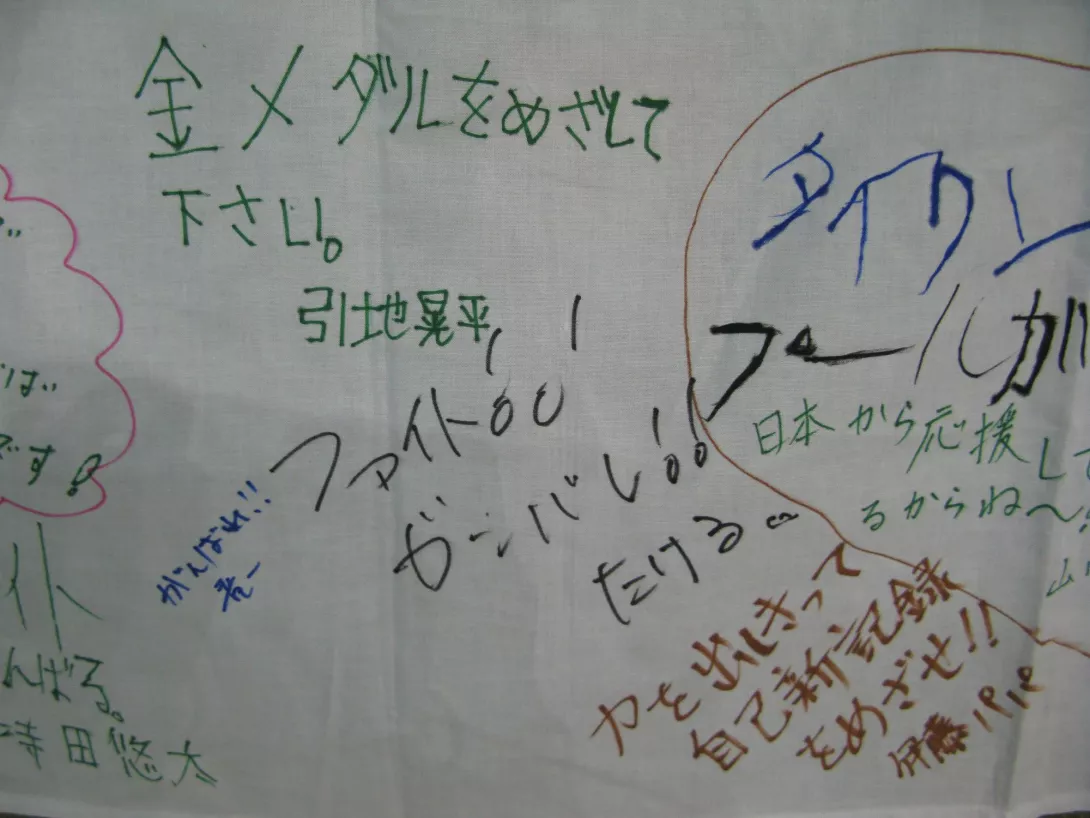 金メダルをめざして
下さい。
引地晃平
ファイト!!
ガンバレ!!
たける
がんばれ!!
タイワン
プール
日本から応援して
るからね〜
力を出しきって
自己新記録
をめざせ!!
伊藤パパ
です
イト
んばる。
田悠太